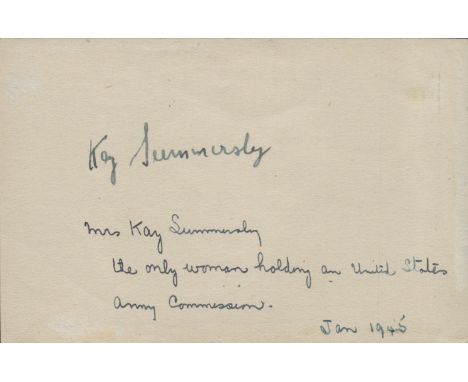 Kay Summersby
Mrs Kay Summersby
the only woman holding an United States
Army Commission.
Jan 1945